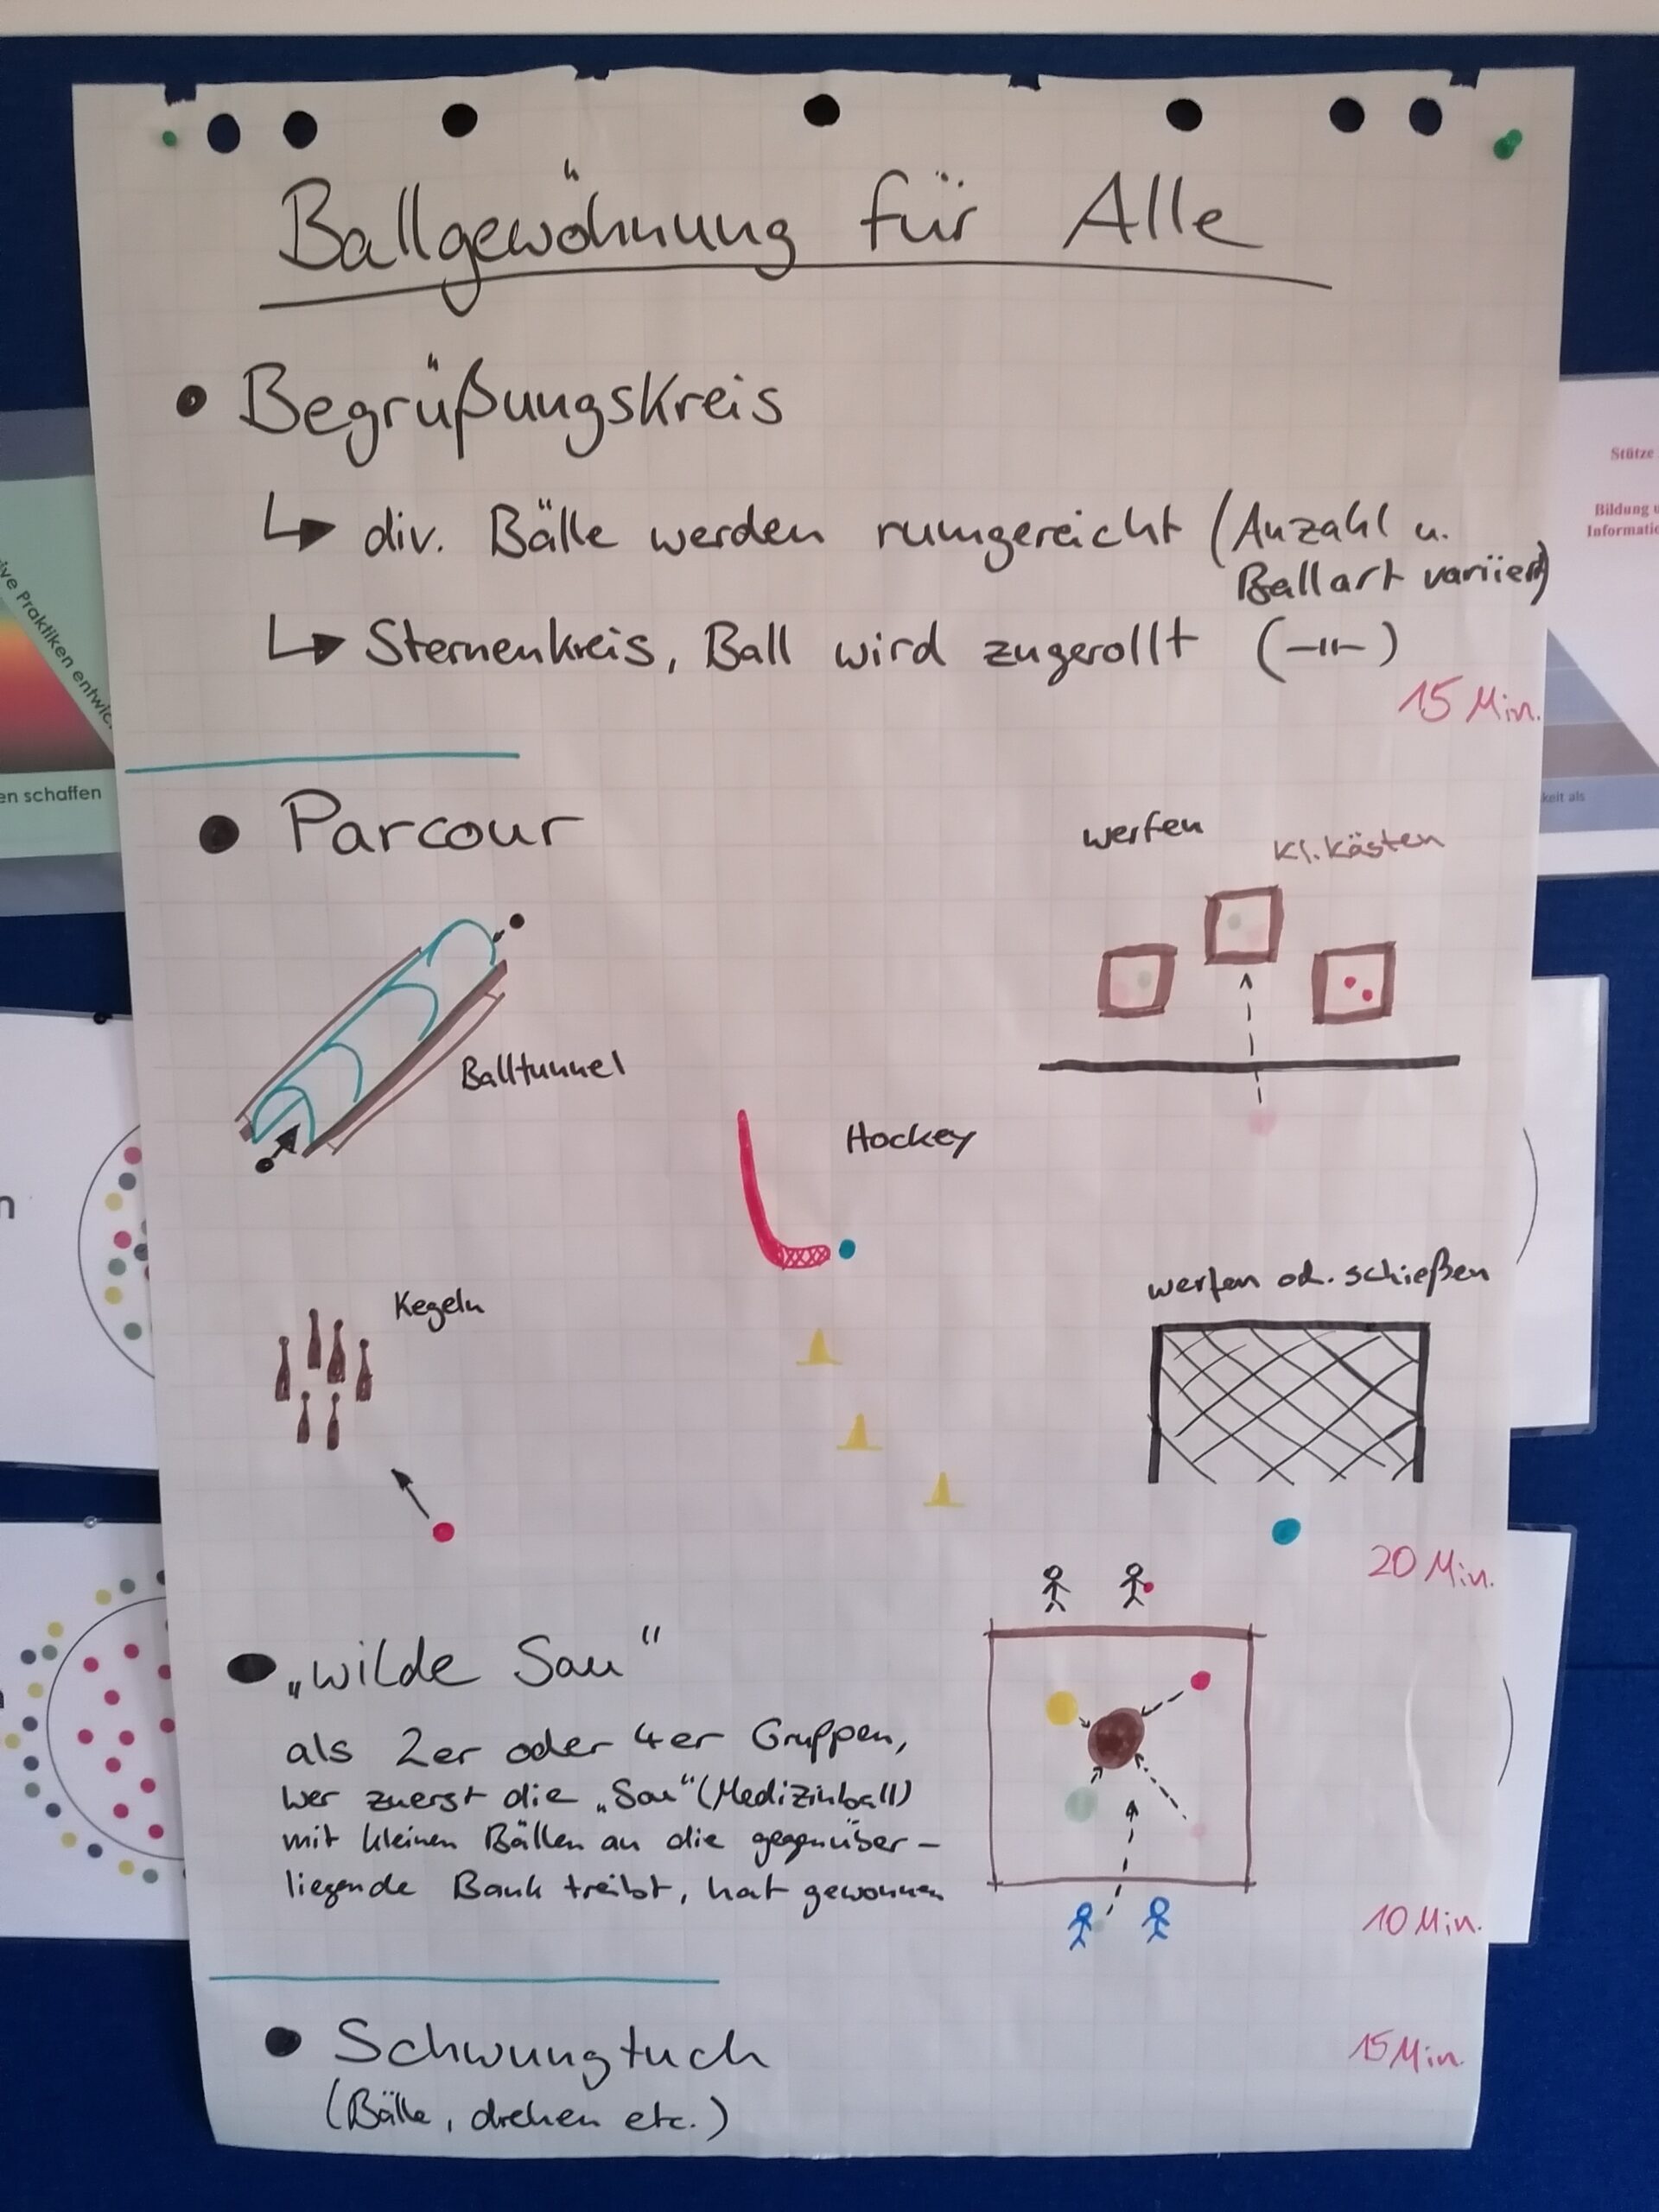 Ballgewöhnung für Alle
Begrüßungskreis
div. Bälle werden rumgereicht (Anzahl u.
Ballart variiert)
Sternenkreis, Ball wird zugerollt (-"-)
15 Min.
Parcour
werfen
Kl. Kästen
Balltunnel
Hockey
Kegeln
werfen od. schießen
20 Min.
„wilde Sau"
als 2er oder 4er Gruppen,
wer zuerst die „Sau" (Medizinball)
mit kleinen Bällen an die gegenüber-
liegende Bank treibt, hat gewonnen
10 Min.
Schwungtuch
15 Min.
(Bälle, drehen etc.)
Praktiken
en schaffen
Stütze
Bildung u
Informatio
keit als
n